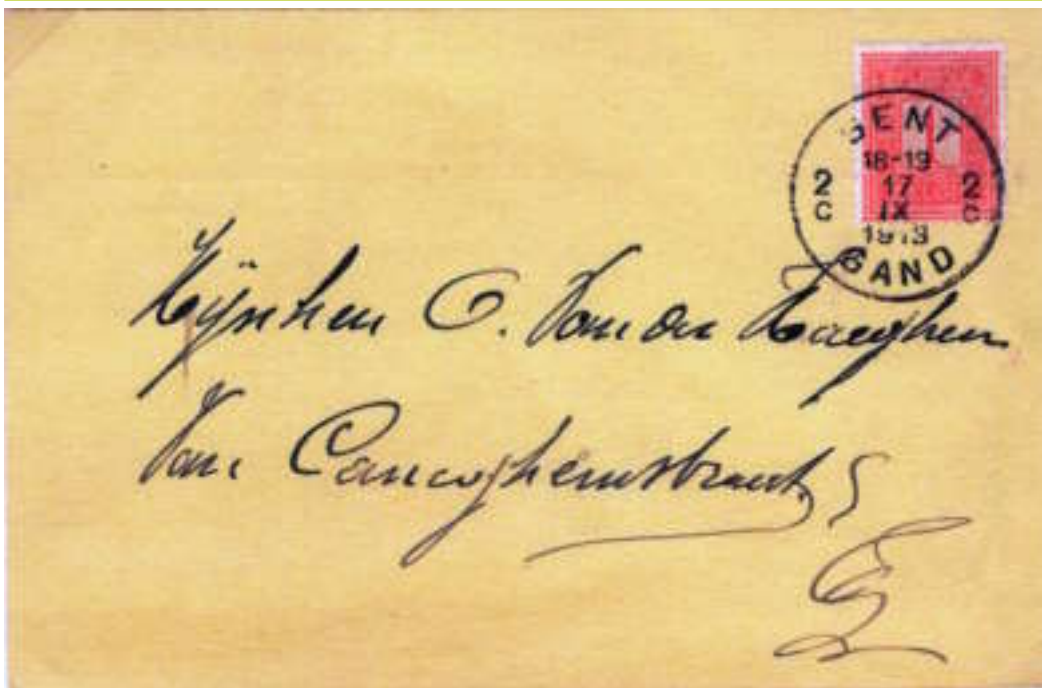 GENT
18-19
2 17 2
C IX C
1913
GAND
Mijnheer C. Van der Haeghen
Van Caneghemstraat, 5